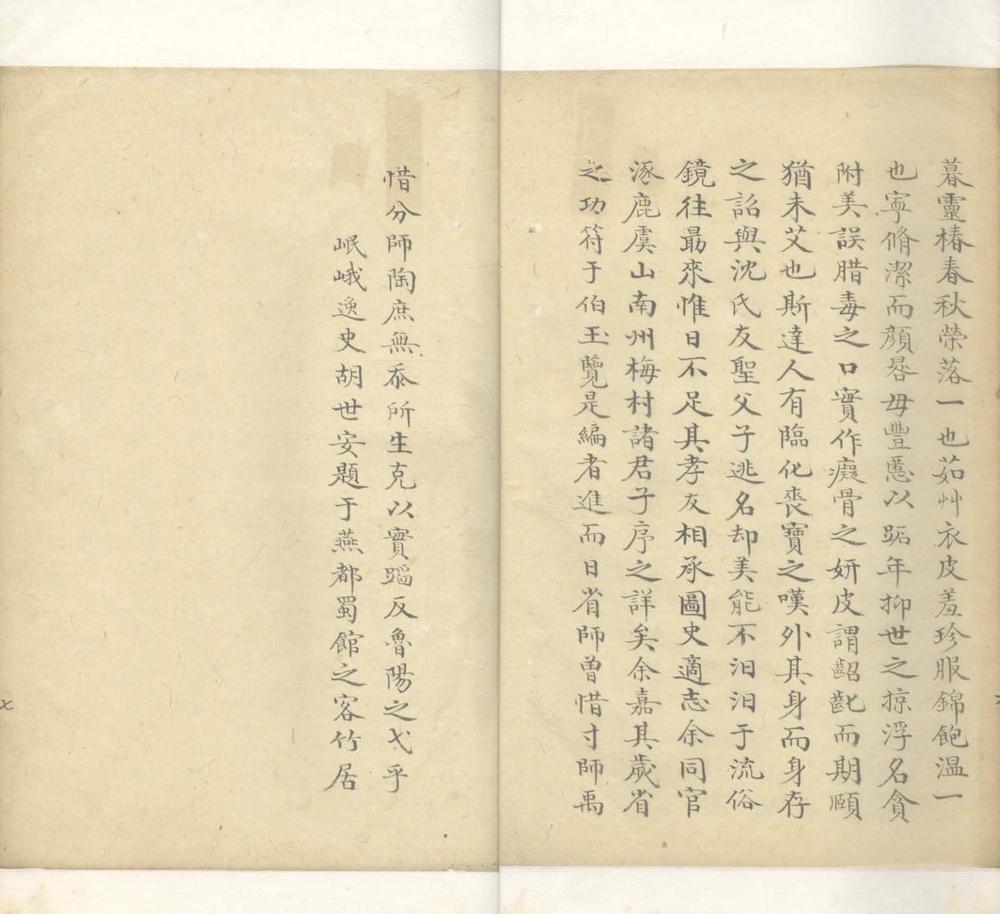 暮靈椿春秋榮落一也茹艸衣皮羞珍服錦飽溫一
也寧脩潔而顏晷毋豐慝以跖年抑世之掠浮名貪
附美誤腊毒之口實作癡骨之妍皮謂齠齔而期頤
猶未艾也斯達人有臨化喪寶之嘆外其身而身存
之詔與沈氏友聖父子逃名却美能不汩汩于流俗
鏡往勗來惟日不足其孝友相承圖史適志余同官
涿鹿虞山南州梅村諸君子序之詳矣余嘉其歲省
之功符于伯玉覽是編者進而日省師曾惜寸師禹
惜分師陶庶無忝所生克以實蹈反魯陽之戈乎
岷峨逸史胡世安題于燕都蜀館之客竹居
七